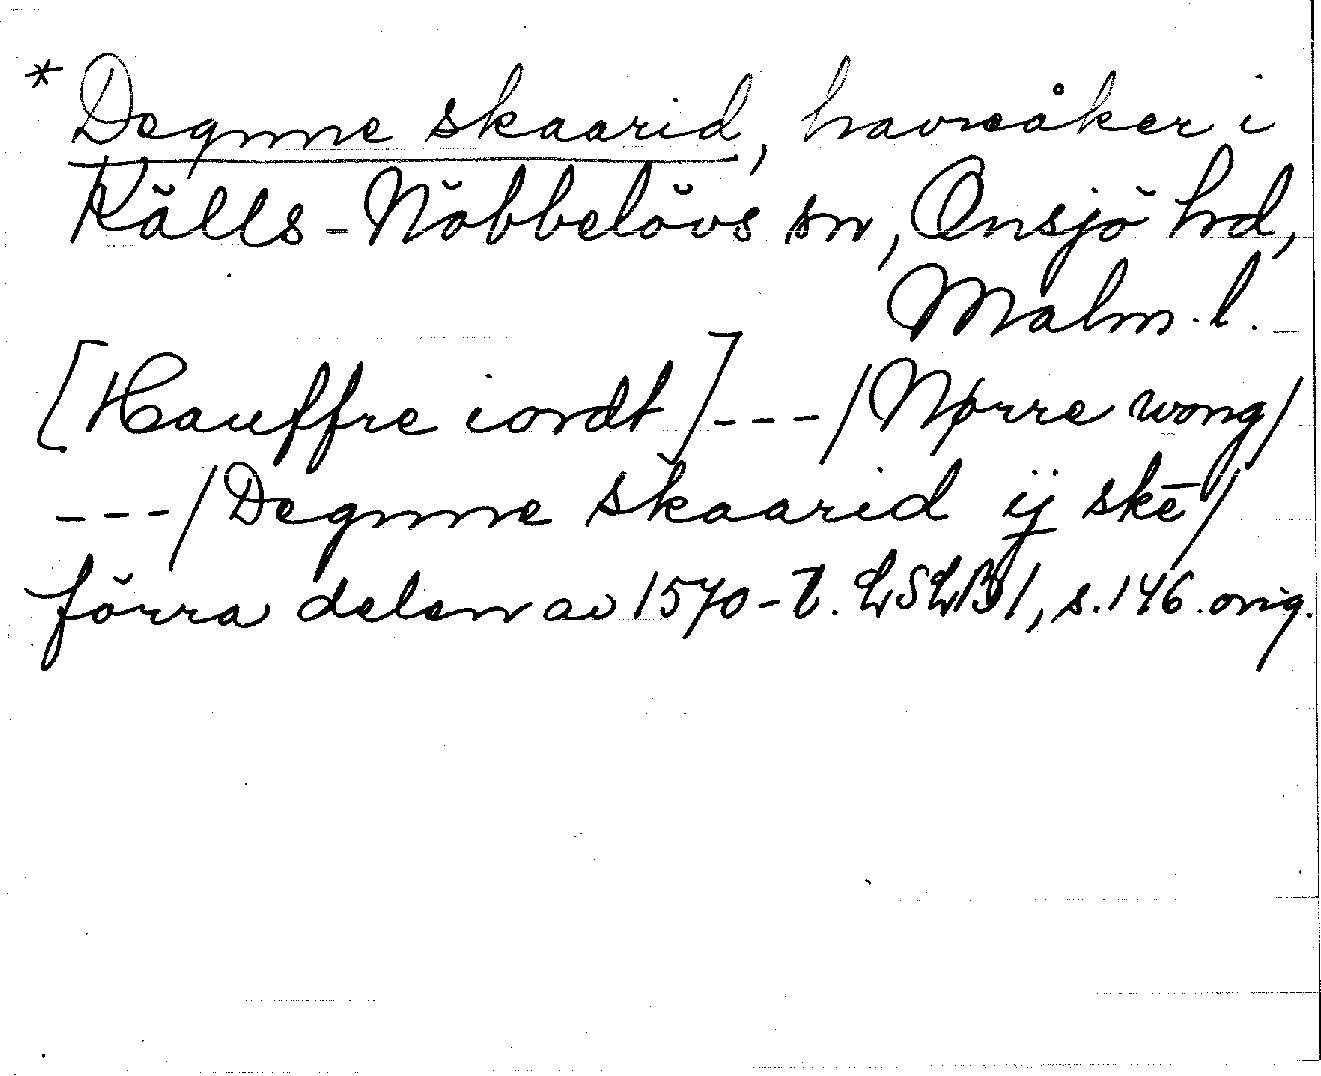 * Degnne skaarid, havreåker i
Källs-Nöbbelövs sn, Onsjö hd,
Malm. l.
[Hauffre iordt] --- /Nørre wong/
--- /Degnne skaarid ij skē/
förra delen av 1570-t. LSLB 1, s. 146. orig.